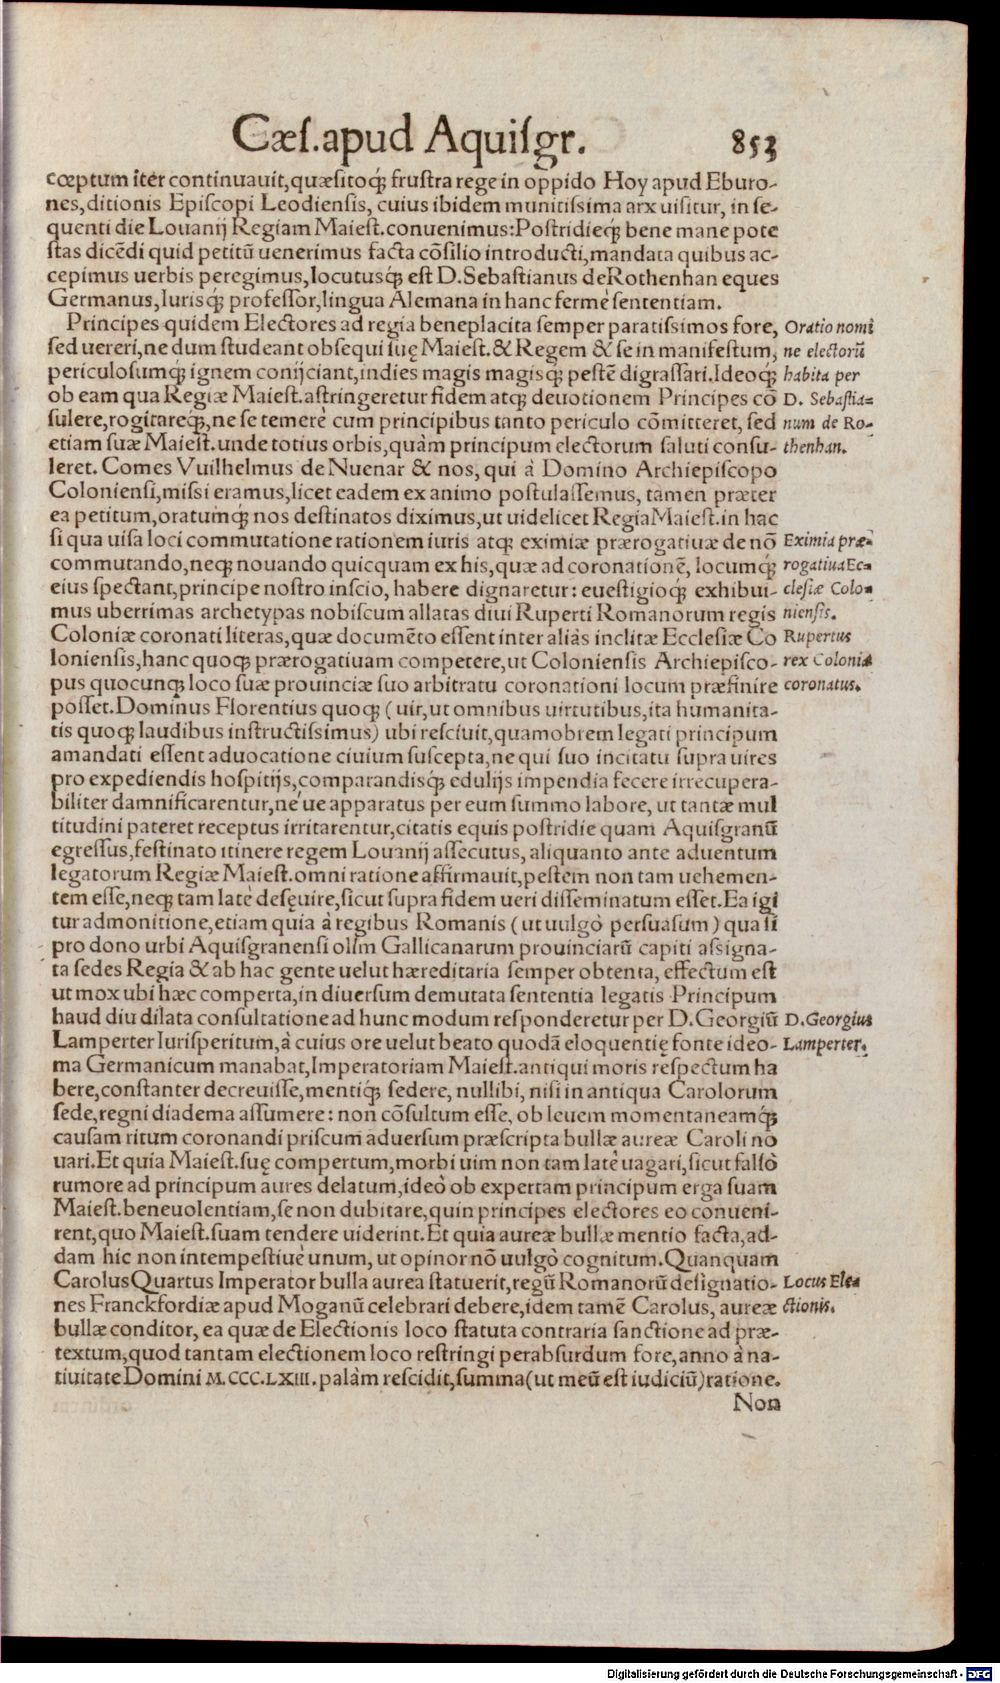 Cæſ. apud Aquiſgr. 853
cœptum iter continuauit, quæſitoq́; fruſtra rege in oppido Hoy apud Eburo-
nes, ditionis Epiſcopi Leodienſis, cuius ibidem munitiſsima arx uiſitur, in ſe-
quenti die Louanij Regiam Maieſt. conuenimus: Poſtridieq́; bene mane pote
ſtas dicẽdi quid petitũ uenerimus facta cõſilio introducti, mandata quibus ac-
cepimus uerbis peregimus, locutusq́; eſt D. Sebaſtianus de Rothenhan eques
Germanus, Iurisq́; profeſſor, lingua Alemana in hanc fermè ſententiam.
Principes quidem Electores ad regia beneplacita ſemper paratiſsimos fore,
ſed uereri, ne dum ſtudeant obſequi ſuę Maieſt. & Regem & ſe in manifeſtum,
periculoſumq́; ignem conijciant, indies magis magisq́; peſtẽ digraſſari. Ideoq́;
ob eam qua Regiæ Maieſt. aſtringeretur fidem atq; deuotionem Principes cõ
ſulere, rogitareq́;, ne ſe temerè cum principibus tanto periculo cõmitteret, ſed
etiam ſuæ Maieſt. unde totius orbis, quàm principum electorum ſaluti conſu-
leret. Comes Vuilhelmus de Nuenar & nos, qui à Domino Archiepiſcopo
Colonienſi, miſsi eramus, licet eadem ex animo poſtulaſſemus, tamen præter
ea petitum, oratumq́; nos deſtinatos diximus, ut uidelicet Regia Maieſt. in hac
ſi qua uiſa loci commutatione rationem iuris atq; eximiæ prærogatiuæ de nõ
commutando, neq; nouando quicquam ex his, quæ ad coronationẽ, locumq́;
eius ſpectant, principe noſtro inſcio, habere dignaretur: eueſtigioq́; exhibui-
mus uberrimas archetypas nobiſcum allatas diui Ruperti Romanorum regis
Coloniæ coronati literas, quæ documẽto eſſent inter aliàs inclitæ Eccleſiæ Co
lonienſis, hanc quoq; prærogatiuam competere, ut Colonienſis Archiepiſco-
pus quocunq; loco ſuæ prouinciæ ſuo arbitratu coronationi locum præfinire
poſſet. Dominus Florentius quoq; (uir, ut omnibus uirtutibus, ita humanita-
tis quoq; laudibus inſtructiſsimus) ubi reſciuit, quamobrem legati principum
amandati eſſent aduocatione ciuium ſuſcepta, ne qui ſuo incitatu ſupra uires
pro expediendis hoſpitijs, comparandisq́; edulijs impendia fecere irrecupera-
biliter damnificarentur, ne'ue apparatus per eum ſummo labore, ut tantæ mul
titudini pateret receptus irritarentur, citatis equis poſtridie quam Aquiſgranũ
egreſſus, feſtinato itinere regem Louanij aſſecutus, aliquanto ante aduentum
legatorum Regiæ Maieſt. omni ratione affirmauit, peſtem non tam uehemen-
tem eſſe, neq; tam latè deſęuire, ſicut ſupra fidem ueri diſſeminatum eſſet. Ea igi
tur admonitione, etiam quia à regibus Romanis (ut uulgò perſuaſum) quaſi
pro dono urbi Aquiſgranenſi olim Gallicanarum prouinciarũ capiti aſsigna-
ta ſedes Regia & ab hac gente uelut hæreditaria ſemper obtenta, effectum eſt
ut mox ubi hæc comperta, in diuerſum demutata ſententia legatis Principum
haud diu dilata conſultatione ad hunc modum reſponderetur per D. Georgiũ
Lamperter Iuriſperitum, à cuius ore uelut beato quodã eloquentię fonte ideo-
ma Germanicum manabat, Imperatoriam Maieſt. antiqui moris reſpectum ha
bere, conſtanter decreuiſſe, mentiq́; ſedere, nullibi, niſi in antiqua Carolorum
ſede, regni diadema aſſumere: non cõſultum eſſe, ob leuem momentaneamq́;
cauſam ritum coronandi priſcum aduerſum præſcripta bullæ aureæ Caroli no
uari. Et quia Maieſt. ſuę compertum, morbi uim non tam latè uagari, ſicut falſò
rumore ad principum aures delatum, ideò ob expertam principum erga ſuam
Maieſt. beneuolentiam, ſe non dubitare, quin principes electores eo conueni-
rent, quo Maieſt. ſuam tendere uiderint. Et quia aureæ bullæ mentio facta, ad-
dam hic non intempeſtiuè unum, ut opinor nõ uulgò cognitum. Quanquam
Carolus Quartus Imperator bulla aurea ſtatuerit, regũ Romanorũ deſignatio-
nes Franckfordiæ apud Moganũ celebrari debere, idem tamẽ Carolus, aureæ
bullæ conditor, ea quæ de Electionis loco ſtatuta contraria ſanctione ad præ-
textum, quod tantam electionem loco reſtringi perabſurdum fore, anno à na-
tiuitate Domini M.CCC.LXIII. palàm reſcidit, ſumma (ut meũ eſt iudiciũ) ratione.
Non
Oratio nomi
ne electorũ
habita per
D. Sebaſtia-
num de Ro-
thenhan.
Eximia præ-
rogatiua Ec-
cleſiæ Colo-
nienſis.
Rupertus
rex Coloniæ
coronatus.
D. Georgius
Lamperter.
Locus Ele-
ctionis.
Digitalisierung gefördert durch die Deutsche Forschungsgemeinschaft - DFG